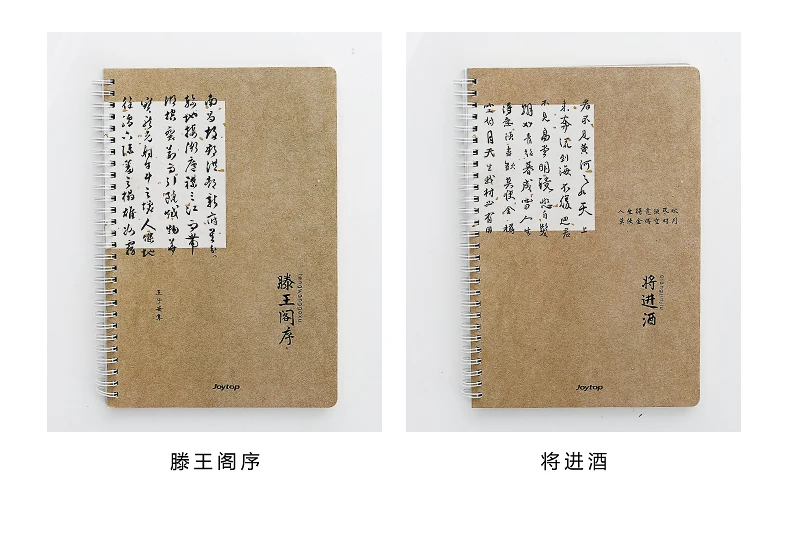 南昌故郡洪都新府星分
轸地接衡庐襟三江而带
湖控蛮荆而引瓯越物华
宝龙光射牛斗之墟人杰地
之榻雄州雾
滕王阁序
Joytop
君不见黄河之水天上
来奔流到海不复回君
不见高堂明镜悲白发
朝如青丝暮成雪人生
得意须尽欢莫使金樽
空对月天生我材必有用
人生得意须尽欢
莫使金樽空对月
将进酒
qiangjinjiu
Joytop
滕王阁序
将进酒